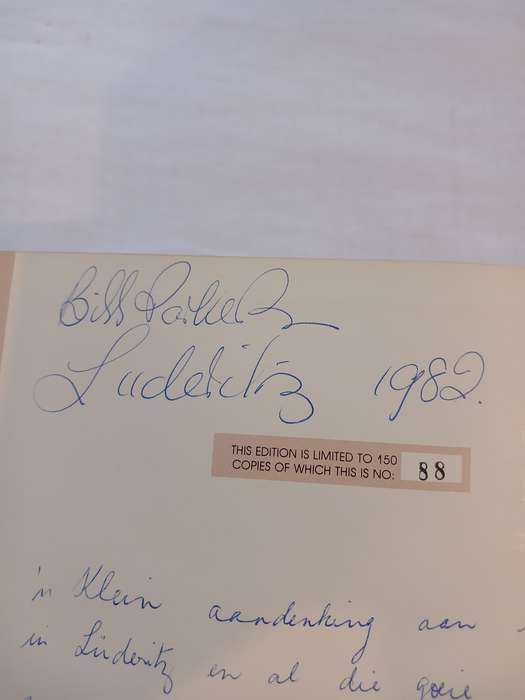 Bill Parker
Lüderitz 1982.
THIS EDITION IS LIMITED TO 150
COPIES OF WHICH THIS IS NO: 88
'n Klein aandenking aan
in Lüderitz en al die goeie